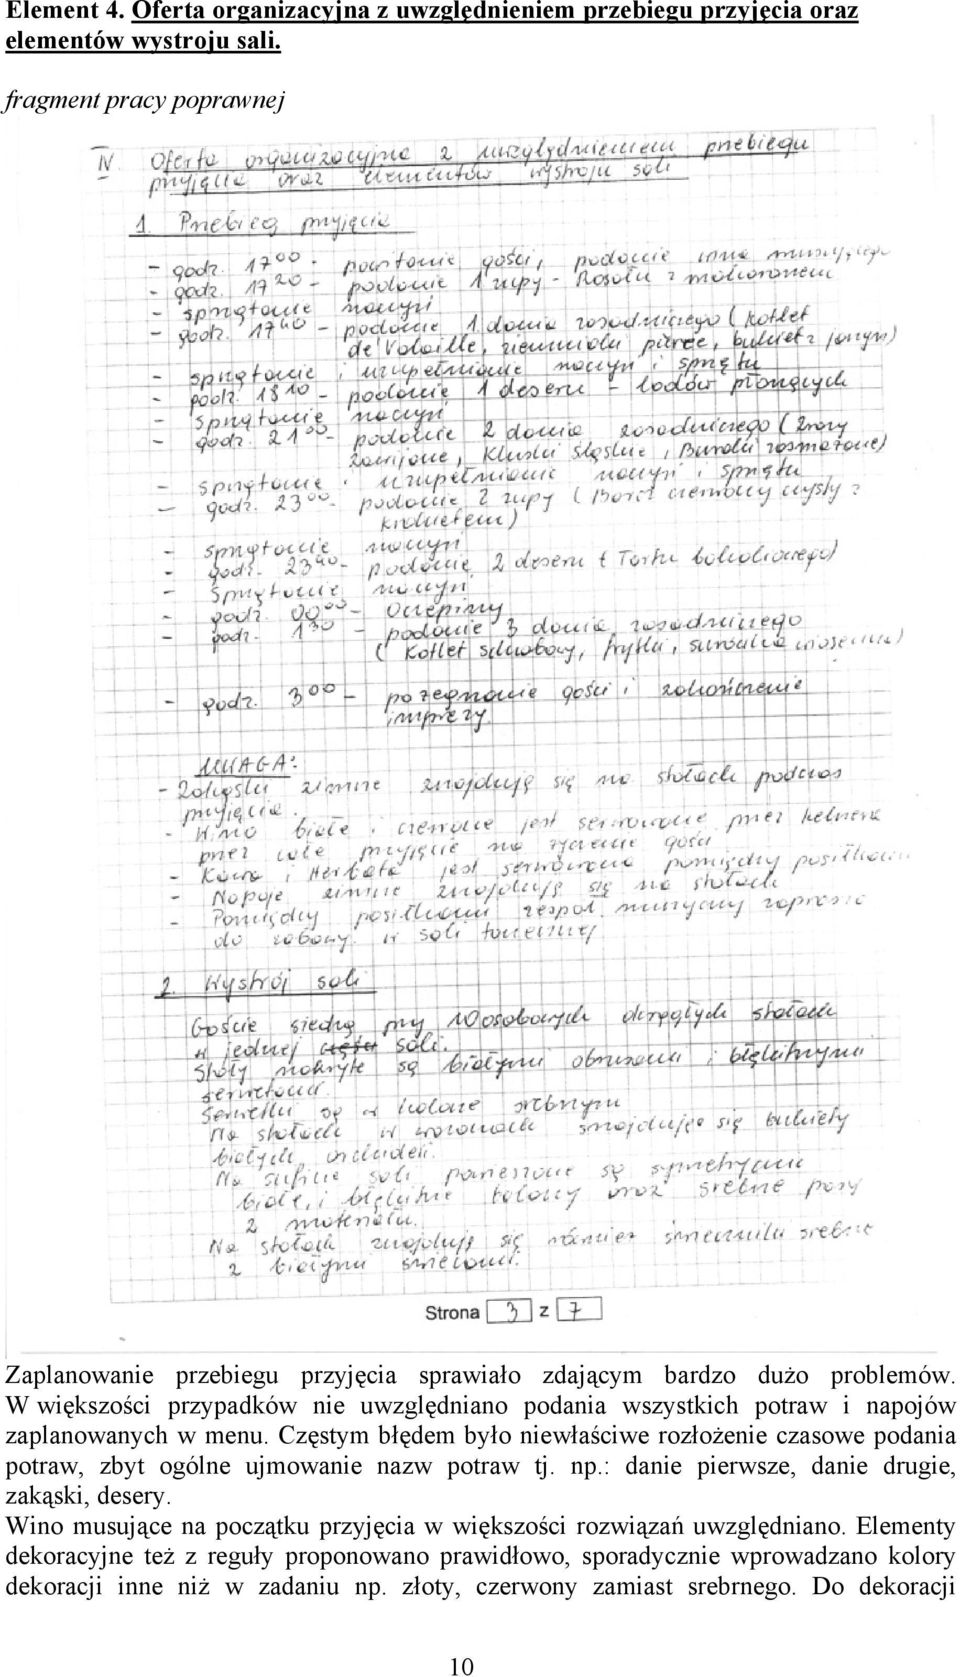 Element 4. Oferta organizacyjna z uwzględnieniem przebiegu przyjęcia oraz
elementów wystroju sali.
fragment pracy poprawnej
IV Oferta organizacyjna z uwzględnieniem przebiegu
przyjęcia oraz elementów wystroju sali
1. Przebieg przyjęcia
- godz. 17⁰⁰ - powitanie gości, podanie wina musującego
- godz. 17²⁰ - podanie 1 zupy - Rosołu z makaronem
- sprzątanie naczyń
- godz. 17⁴⁰ - podanie 1 dania zasadniczego (kotlet
de Volaille, ziemniaki piirée, bukiet z jarzyn)
- sprzątanie i uzupełnianie naczyń i sprzętu
- godz. 18¹⁰ - podanie 1 deseru - lodów płonących
- sprzątanie naczyń
- godz. 21⁰⁰ - podanie 2 dania zasadniczego (Zrazy
zawijane, kluski śląskie, Buraki zasmażane)
- sprzątanie i uzupełnianie naczyń i sprzętu
- godz. 23⁰⁰ - podanie 2 zupy (Barszcz czerwony czysty z
krokietem)
- sprzątanie naczyń
- godz. 23⁴⁰ - podanie 2 deseru (Tortu
- Sprzątanie naczyń
- godz. 00⁰⁰ - Oczepiny
- godz. 1³⁰ - podanie 3 dania zasadniczego
(Kotlet schabowy, frytki, surówka wiosenna)
- godz. 3⁰⁰ - pożegnanie gości i zakończenie
imprezy.
UWAGA:
- Zakąski zimne znajdują się na stołach podczas
przyjęcia.
- Wino białe i czerwone jest serwowane przez kelnera
przez całe przyjęcie na życzenie gości
- Kawa i Herbata jest serwowana pomiędzy posiłkami
- Napoje zimne znajdują się na stołach
- Pomiędzy posiłkami zespół muzyczny zaprasza
do zabawy w sali tanecznej
2. Wystrój sali
Goście siedzą przy 10 osobowych okrągłych stołach
w jednej części sali.
Stoły nakryte są białymi obrusami i błękitnymi
serwetami.
Serwetki są w kolorze srebrnym
Na stołach w wazonach znajduję się bukiety
białych orchideii.
Na suficie sali są symetrycznie
białe, i błękitne balony oraz srebrne pasy
z materiału.
Na stołach znajdują się również świeczniki srebrne
z białymi świecami.
Strona 3 z 7
Zaplanowanie przebiegu przyjęcia sprawiało zdającym bardzo dużo problemów.
W większości przypadków nie uwzględniano podania wszystkich potraw i napojów
zaplanowanych w menu. Częstym błędem było niewłaściwe rozłożenie czasowe podania
potraw, zbyt ogólne ujmowanie nazw potraw tj. np.: danie pierwsze, danie drugie,
zakąski, desery.
Wino musujące na początku przyjęcia w większości rozwiązań uwzględniano. Elementy
dekoracyjne też z reguły proponowano prawidłowo, sporadycznie wprowadzano kolory
dekoracji inne niż w zadaniu np. złoty, czerwony zamiast srebrnego. Do dekoracji
10